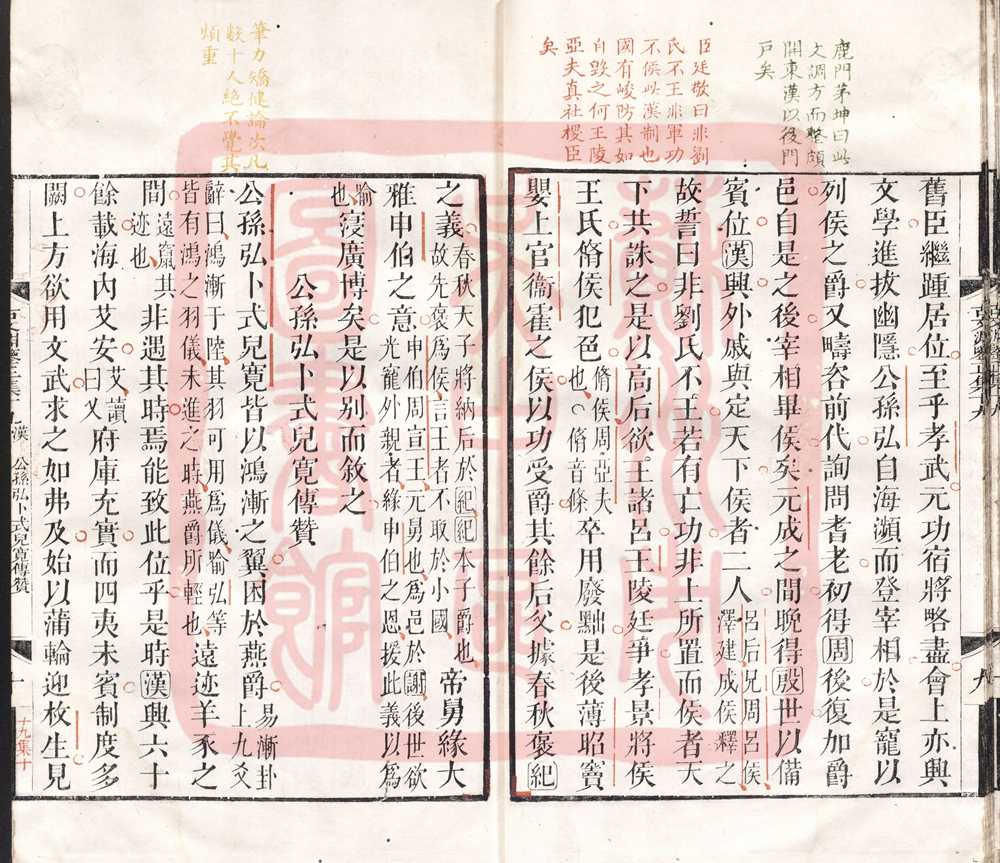 鹿門茅坤曰此
文調方而整頗
開東漢以後門
戸矣
臣廷敬曰非劉
氏不王非軍功
不侯此漢制也
國有峻防其如
自毀之何王陵
亞夫真社稷臣
矣
舊臣繼踵居位至乎孝武元功宿將略盡會上亦興
文學進拔幽隱公孫弘自海瀕而登宰相於是寵以
列侯之爵又疇咨前代詢問耆老初得周後復加爵
邑自是之後宰相畢侯矣元成之間晚得殷世以備
賓位漢興外戚與定天下侯者二人呂后兄周呂侯澤建成侯釋之
故誓曰非劉氏不王若有亡功非上所置而侯者天
下共誅之是以高后欲王諸呂王陵廷爭孝景將侯
王氏脩侯犯色脩侯周亞夫也脩音條卒用廢黜是後薄昭竇
嬰上官衞霍之侯以功受爵其餘后父據春秋褒紀
筆力矯健論次凡
數十人絶不覺其
煩重
之義春秋天子將納后於紀紀本子爵也故先褒爲侯言王者不取於小國帝舅緣大
雅申伯之意申伯周宣王元舅也爲邑於謝後世欲光寵外親者緣申伯之恩援此義以爲
喻也寖廣博矣是以别而敘之
公孫弘卜式兒寛傳贊
公孫弘卜式兒寛皆以鴻漸之翼困於燕爵易漸卦上九爻
辭曰鴻漸于陸其羽可用爲儀喻弘等皆有鴻之羽儀未進之時燕爵所輕也遠迹羊豕之
間遠竄其迹也非遇其時焉能致此位乎是時漢興六十
餘載海内艾安艾讀曰乂府庫充實而四夷未賓制度多
闕上方欲用文武求之如弗及始以蒲輪迎枚生見
漢
公孫弘卜式兒寛傳贊
十九集十